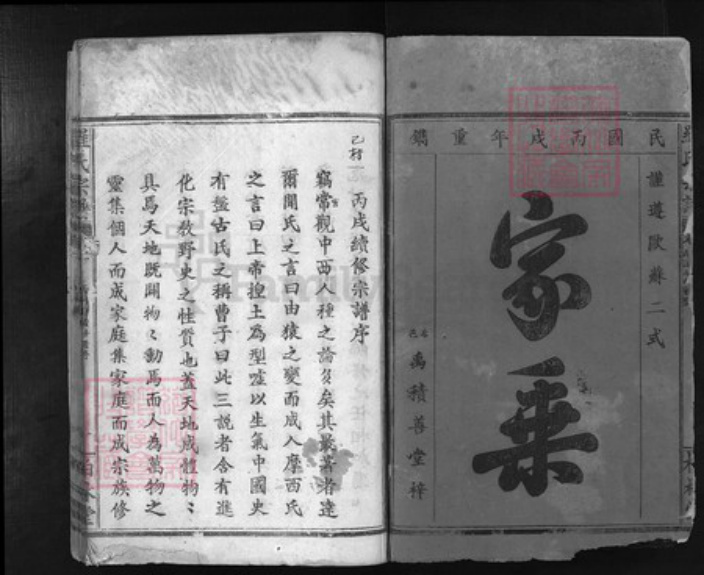 民國丙戌年重鐫
謹遵歐蘇二式
家乘
禹積善堂梓
丙戌續修宗譜序
竊嘗觀中西人種之論多矣其最著者達
爾聞氏之言曰由猿之變而成人摩西氏
之言曰上帝揑土為型噓以生氣中國史
有盤古氏之稱曹子曰此三說者含有進
化宗教野史之性質也蓋天地成體物〻
具焉天地既開物〻動焉而人為萬物之
靈集個人而成家庭集家庭而成宗族修